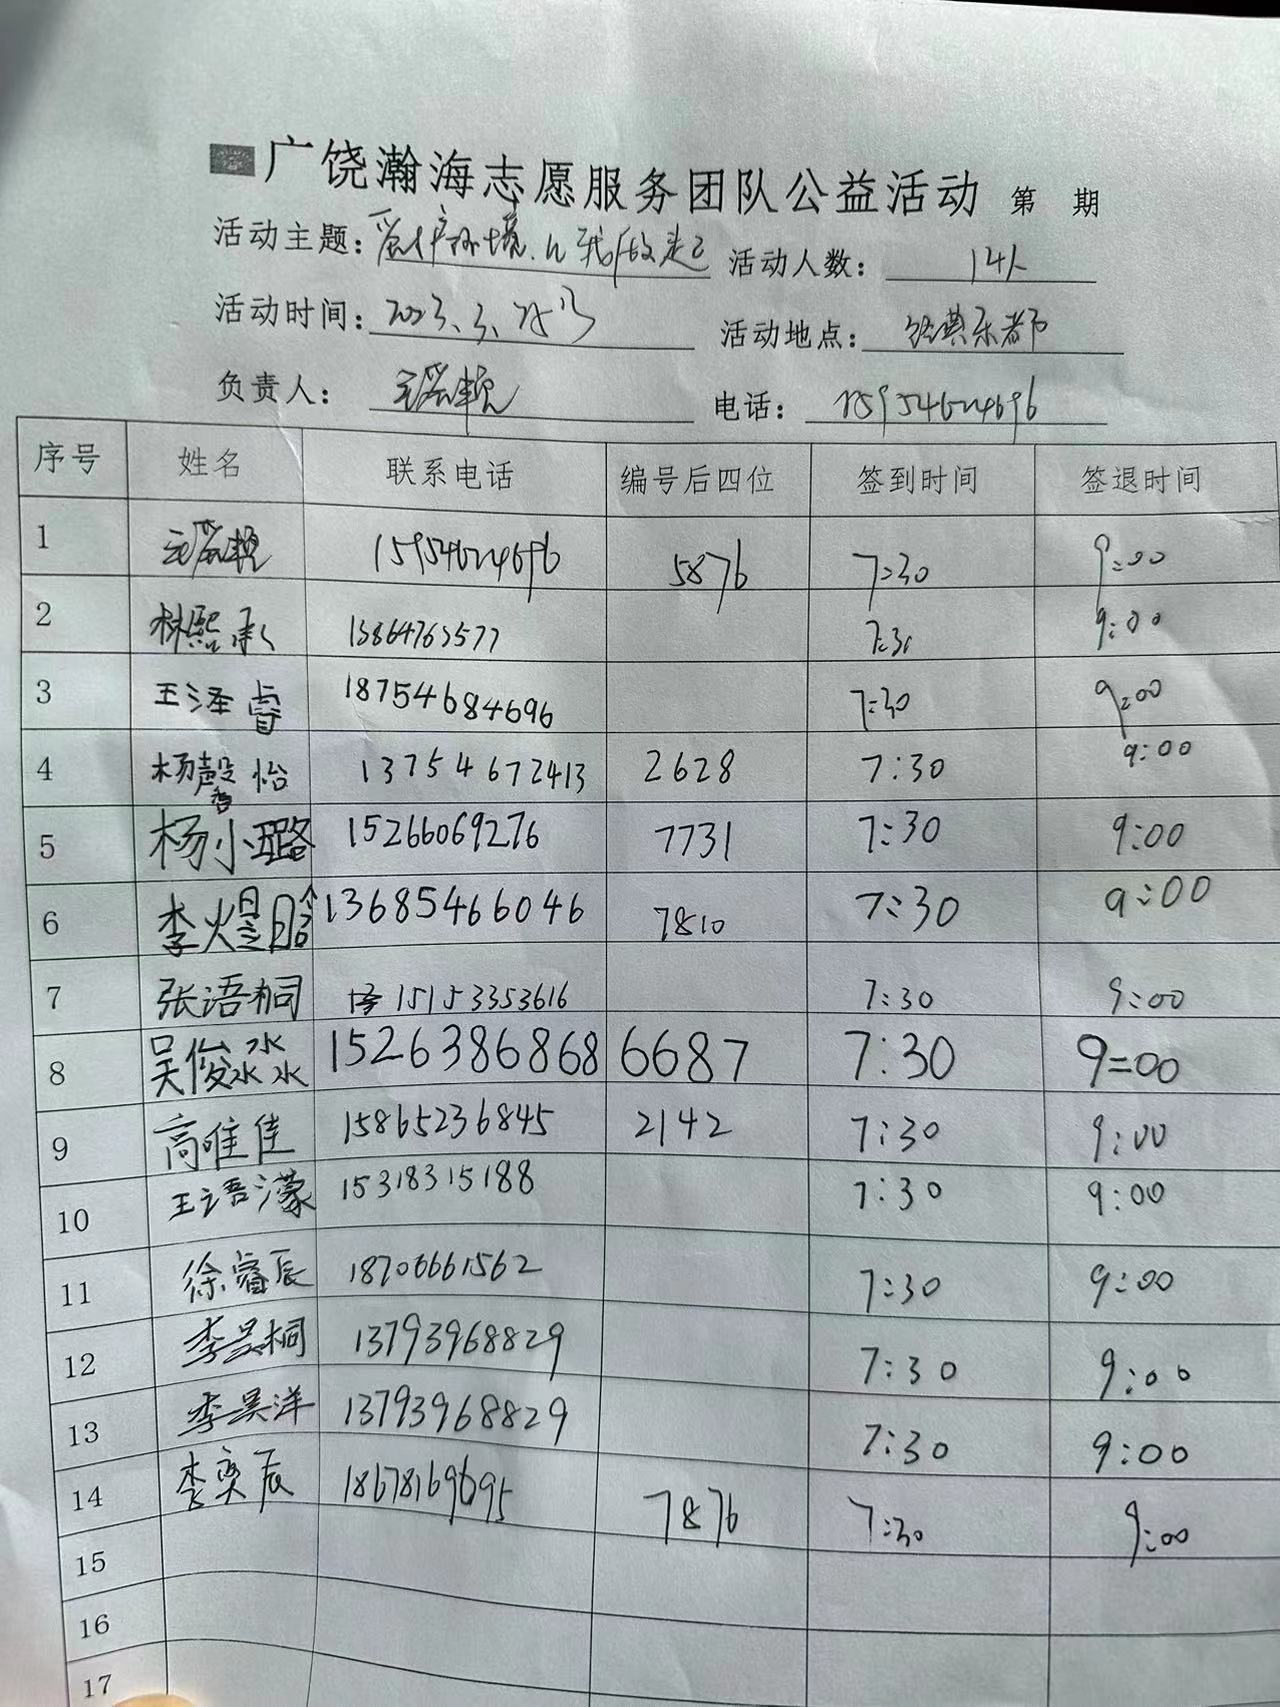 广饶瀚海志愿服务团队公益活动 第 期
活动主题: 爱护环境.从我做起 活动人数: 14人
活动时间: 2023.3.25日 活动地点: 经典乐都
负责人: 电话: 15954624696
序号 姓名 联系电话 编号后四位 签到时间 签退时间
1 15954624696 5876 7:30 9:00
2 林熙承 13864763577 7:30 9:00
3 王泽睿 18754684696 7:30 9:00
4 杨馨怡 13754672413 2628 7:30 9:00
5 杨小璐 15266069276 7731 7:30 9:00
6 李煜晗 13685466046 7810 7:30 9:00
7 张语桐 15153353616 7:30 9:00
8 吴俊淼 1526386868 6687 7:30 9:00
9 高唯佳 15865236845 2142 7:30 9:00
10 王语濛 15318315188 7:30 9:00
11 徐睿辰 18706661562 7:30 9:00
12 李昊桐 13793968829 7:30 9:00
13 李昊洋 13793968829 7:30 9:00
14 李奕辰 18678169695 7876 7:30 9:00
15
16
17